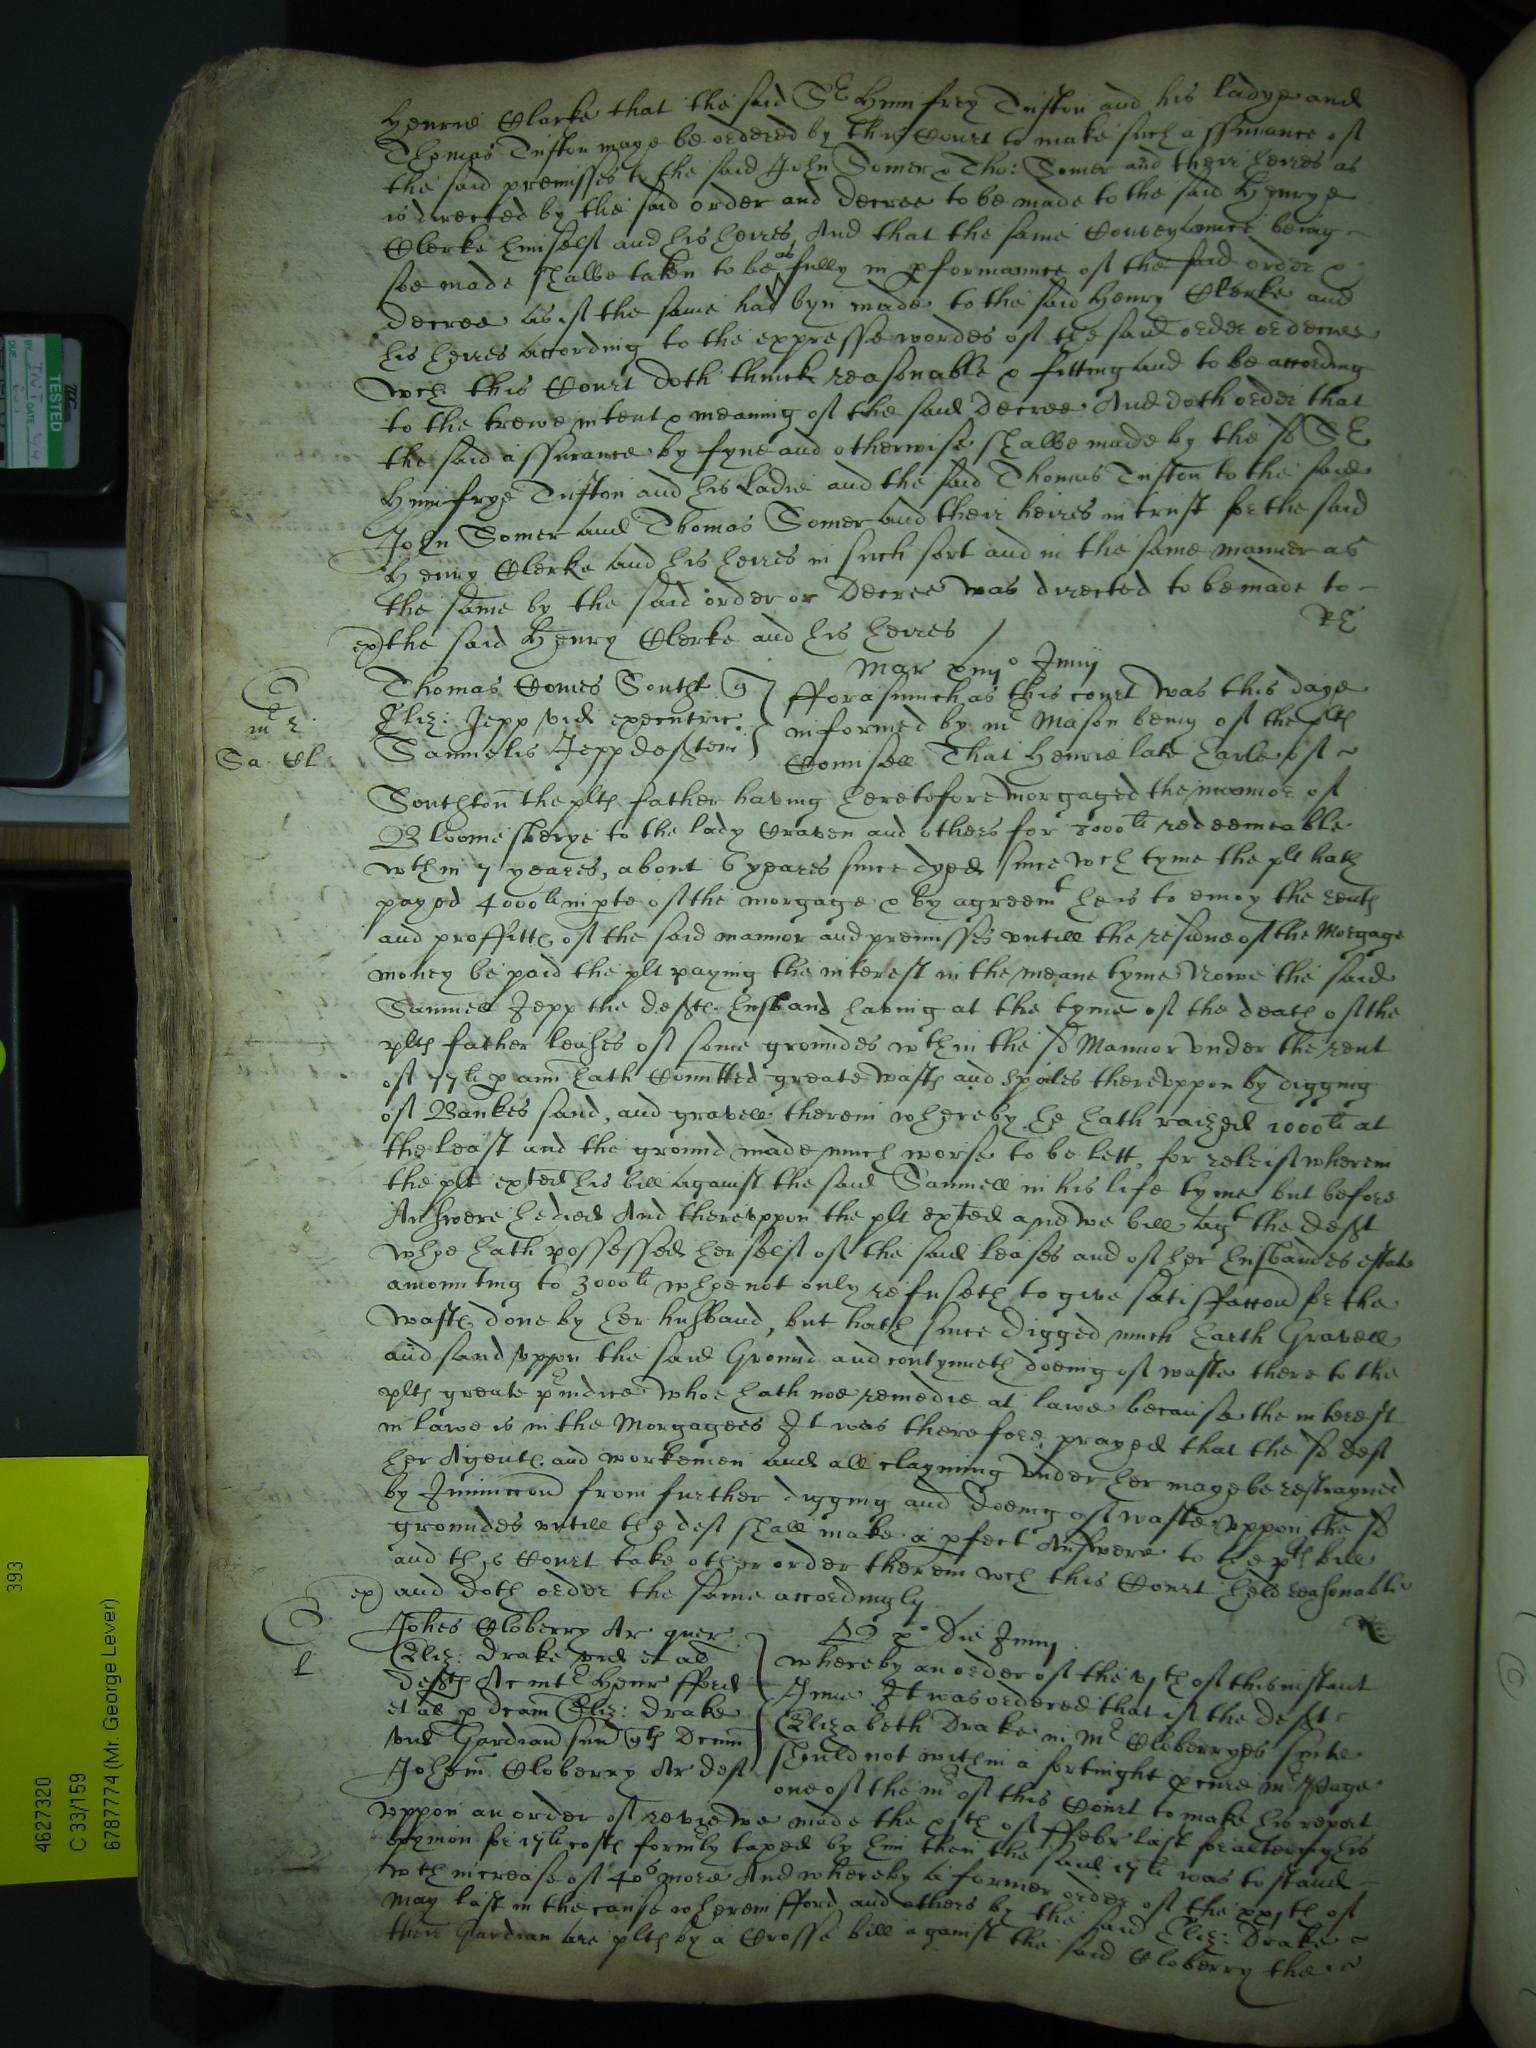 Henrie Clarke that the said Sr Humfrey Tufton and his ladye and
Thomas Tufton maye be ordered by this Court to make such assurance of
the said premisses to the said John Somer & Tho: Somer and their heires as
is directed by the said order and decree to be made to the said Henrye
Clerke himselfe and his heires, And that the same Conveyance being
soe made shalbe taken to be as fully in pformance of the said order &
decree as if the same had byn made to the said Henry Clerke and
his heires according to the expresse wordes of the said order or decree
wch this Court doth thinck reasonable & fitting and to be according
to the trewe intent & meaning of the said decree And doth order that
the said assurance by fyne and otherwise shalbe made by the sd Sr
Humfrye Tufton and his Ladie and the said Thomas Tufton to the said
John Somer and Thomas Somer and their heires in trust for the said
Henry Clerke and his heires in such sort and in the same manner as
the same by the said order or Decree was directed to be made to
ex) the said Henry Clerke and his heires
Mar xiiijo Junij
Thomas Comes Southt q
Eliz: Jepp vid executric
Samuelis Jepp deft
Sa. Cl
fforasmuch as this court was this daye
informed by mr Mason being of the plts
Counsell That Henrie late Earle of
Southton the plts father having heretofore morgaged the mannor of
Bloomesberye to the lady Craven and others for 8000li redeemeable
wthin 7 yeares, about 6 yeares since dyed since wch tyme the plt hath
payed 4000li in pte of the morgage & by agreemt he is to enioy the rents
and proffitts of the said mannor and premisses untill the residue of the Morgage
money be paid the plt paying the interest in the meane tyme Nowe the said
Samuell Jepp the defts husband having at the tyme of the death of the
plts father leases of some groundes wthin the sd Mannor under the rent
of 77li p ann hath Comitted greate wasts and spoiles thereuppon by digging
of Bankes sand, and gravell therein whereby he hath raized 1000li at
the least and the ground made much worse to be lett, for releif wherein
the plt exted his bill against the said Samuell in his life tyme but before
Answere he died And thereuppon the plt exted a newe bill agt the deft
whoe hath possessed her self of the said leases and of her husbandes estate
amounting to 3000li whoe not only refuseth to give satisfaccon for the
wasts done by her husband, but hath since digged much Earth Gravell
and sand uppon the said Ground and contynueth doeing of waste there to the
plts greate preiudice whoe hath noe remedie at lawe because the interest
in lawe is in the Morgagees It was therefore prayed that the sd deft
her Agents and workemen and all clayming under her maye be restrayned
by Iniunccon from further digging and doeing of waste uppon the sd
groundes untill the deft shall make a pfect Answere to the plts bill
and this Court take other order therein wch this Court held reasonable
ex) and doth order the same accordingly
Johes Cloberry Ar quer
Eliz: Drake vid et al
defts Ac int Henr fford
et al p Eliz: Drake
vid Gardian
Johem Cloberry Ar deft
die Junij
whereby an order of the vjth of this instant
June It was ordered that if the deft
Elizabeth Drake in Mr Cloberryes suite
should not within a fortnight pcure mr Page
one of the mrs of this Court to make his report
uppon an order of reviewe made the of ffebr last for altering his
opynion for 17li costs formly taxed by him then the said 17li was to stand
wth increase of 40s more And whereby a former order of the xxjth of
May last in the cause wherein fford and others by the said Eliz: Drake
their Gardian are plts by a Crosse bill against the said Cloberry the
4627320
C 33/159
6787774 (Mr. George Lever)
393
TESTED